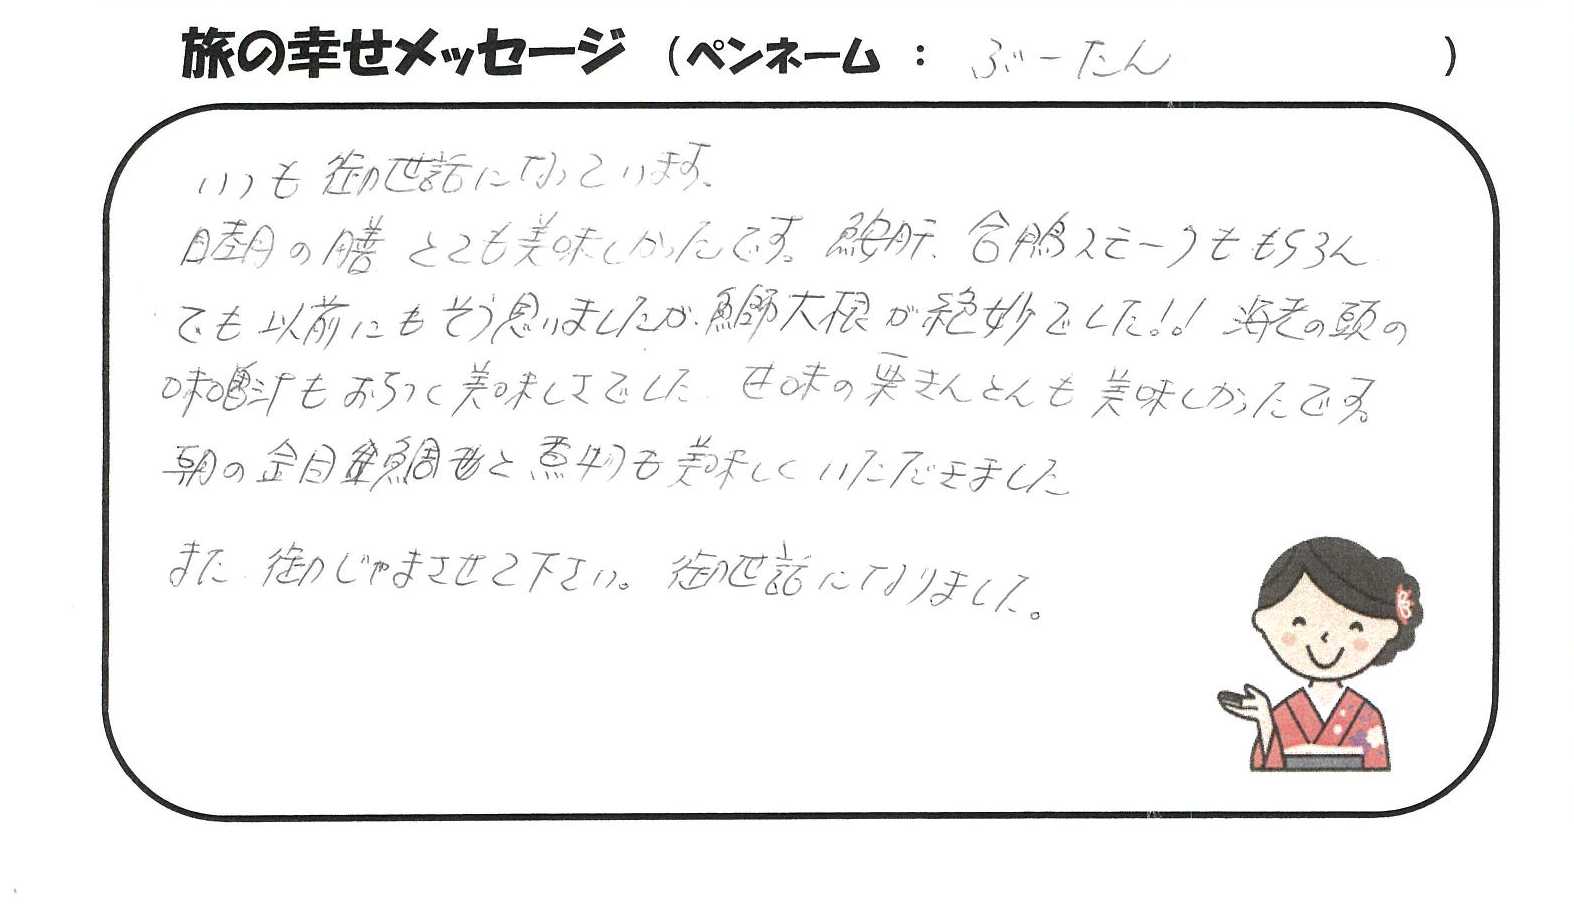 旅の幸せメッセージ（ペンネーム：ぶーたん）
いつも御世話になっています。
睦月の膳 とても美味しかったです。鮟肝、合鴨スモークももちろん
でも以前にもそう思いましたが、鰤大根が絶妙でした!! 海老の頭の
味噌汁もおちつく美味しさでした 甘味の栗きんとんも美味しかったです。
朝の金目鯛と煮物も美味しくいただきました
また 御じゃまさせて下さい。御世話になりました。